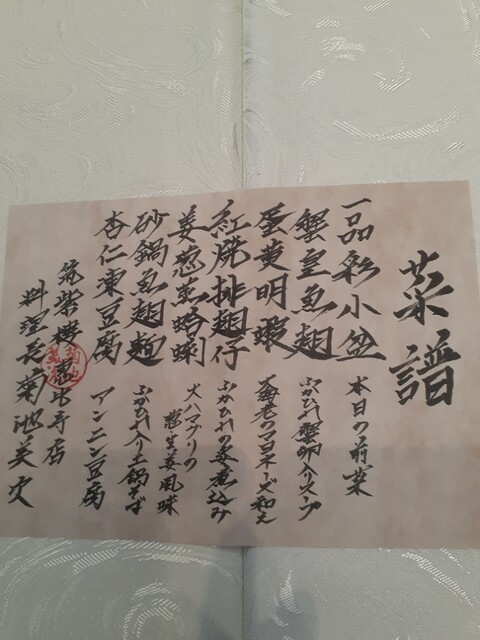 菜譜
一品彩小盆
本日の前菜
蟹皇魚翅
ふかひれ蟹卵入りスープ
蛋黄明蝦
大海老のマヨネーズ和え
紅焼排翅仔
ふかひれの姿煮込み
姜葱蒸蛤蜊
大ハマグリの
葱生姜風味
砂鍋魚翅麺
ふかひれ入り土鍋そば
杏仁凍豆腐
アンニン豆腐
筑紫樓恵比寿店
料理長 菊池美